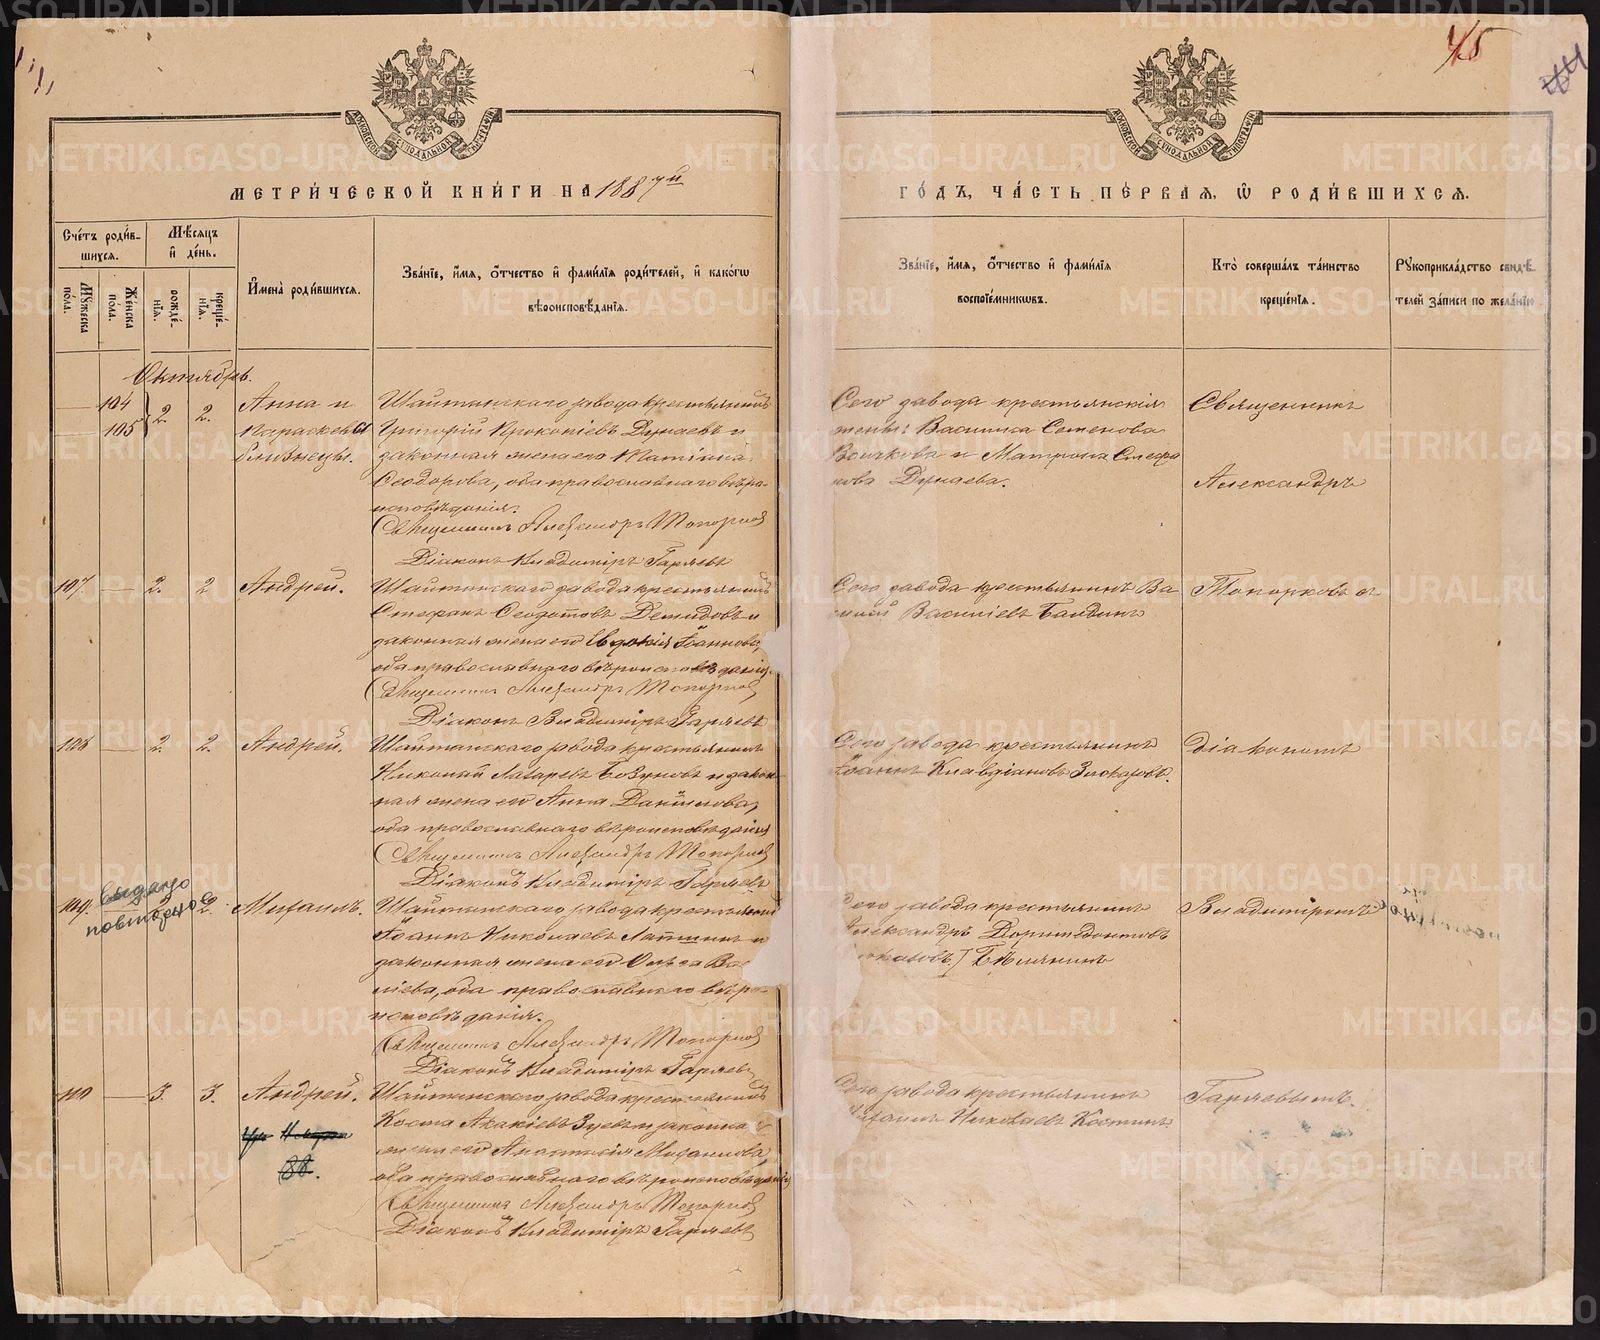 МЕТРИ́ЧЕСКОЙ КНИ́ГИ НА 1887й
ГО́ДЪ, ЧА́СТЬ ПЕ́РВАЯ, Ѿ РОДИ́ВШИХСЯ.
45
Сче́тъ роди́в-
шихся.
Мѣсяцъ
и҆ де́нь.
Мꙋжеска по́ла.
Же́нска по́ла.
рожде́-
нїя.
креще́-
нїя.
И҆мена̀ роди́вшихся.
Зва́нїе, и҆́мя, ѻ҆́тчество и҆ фами́лїя роди́телей, и҆ како́гѡ
вѣроисповѣ́данїя.
Зва́нїе, и҆́мя, ѻ҆́тчество и҆ фами́лїя
воспрїе́мниковъ.
Кто̀ соверша́лъ та́инство
креще́нїя.
Рꙋкоприкла́дство свидѣ́-
телей за́писи по жела́нїю
Октябрь.
104
105
2. 2.
Анна и
Параскева
близнецы.
Шайтанскаго завода крестьянинъ
Григорій Прокопіевъ Дунаевъ и
законная жена его Татіана
Ѳеодорова, оба православнаго вѣро-
исповѣданія.
Священникъ Александръ Топорков
Діаконъ Владиміръ Гаряевъ
Сего завода крестьянскія
Василиса Семенова
и Матрона Стефа
нова Дунаева.
Священникъ
Александръ
107. — 2. 2
Андрей.
Шайтанскаго завода крестьянинъ
Стефанъ Ѳедотовъ Демидовъ и
законная жена его Евдокія Іоаннова,
оба православнаго вѣроисповѣданія.
Священникъ Александръ Топорков
Діаконъ Владиміръ Гаряевъ
Сего завода крестьянинъ Ва
силій Васильевъ Балдинъ
Топорковъ съ
108 — 2. 2.
Андрей.
Шайтанскаго завода крестьянинъ
Николай Лазаревъ Бозуновъ и закон-
ная жена его Анна Даніилова,
оба православнаго вѣроисповѣданія
Священникъ Александръ Топорков
Діаконъ Владиміръ Гаряевъ
Сего завода крестьянинъ
Іоаннъ Клавдіановъ
діакономъ
109. — 2. 2.
выдано
повторное
Михаилъ.
Шайтанскаго завода крестьянинъ
Іоаннъ Николаевъ Лапшинъ и
законная жена его Ольга Ва
ліева, оба православнаго вѣро-
исповѣданія.
Священникъ Александръ Топорков
Діаконъ Владиміръ Гаряевъ
Сего завода крестьянинъ
Александръ Доримедонтовъ
Бѣлянинъ
Владиміромъ
110 — 3. 3.
Андрей.
88.
Шайтанскаго завода крестьянинъ
Косма Акакіевъ Зуевъ и законна
жена его Анастасія Михаилова,
оба православнаго вѣроисповѣданія
Священникъ Александръ Топорков
Діаконъ Владиміръ Гаряевъ
Сего завода крестьянинъ
Николаевъ Костинъ.
Гаряевымъ.
METRIKI.GASO-URAL.RU